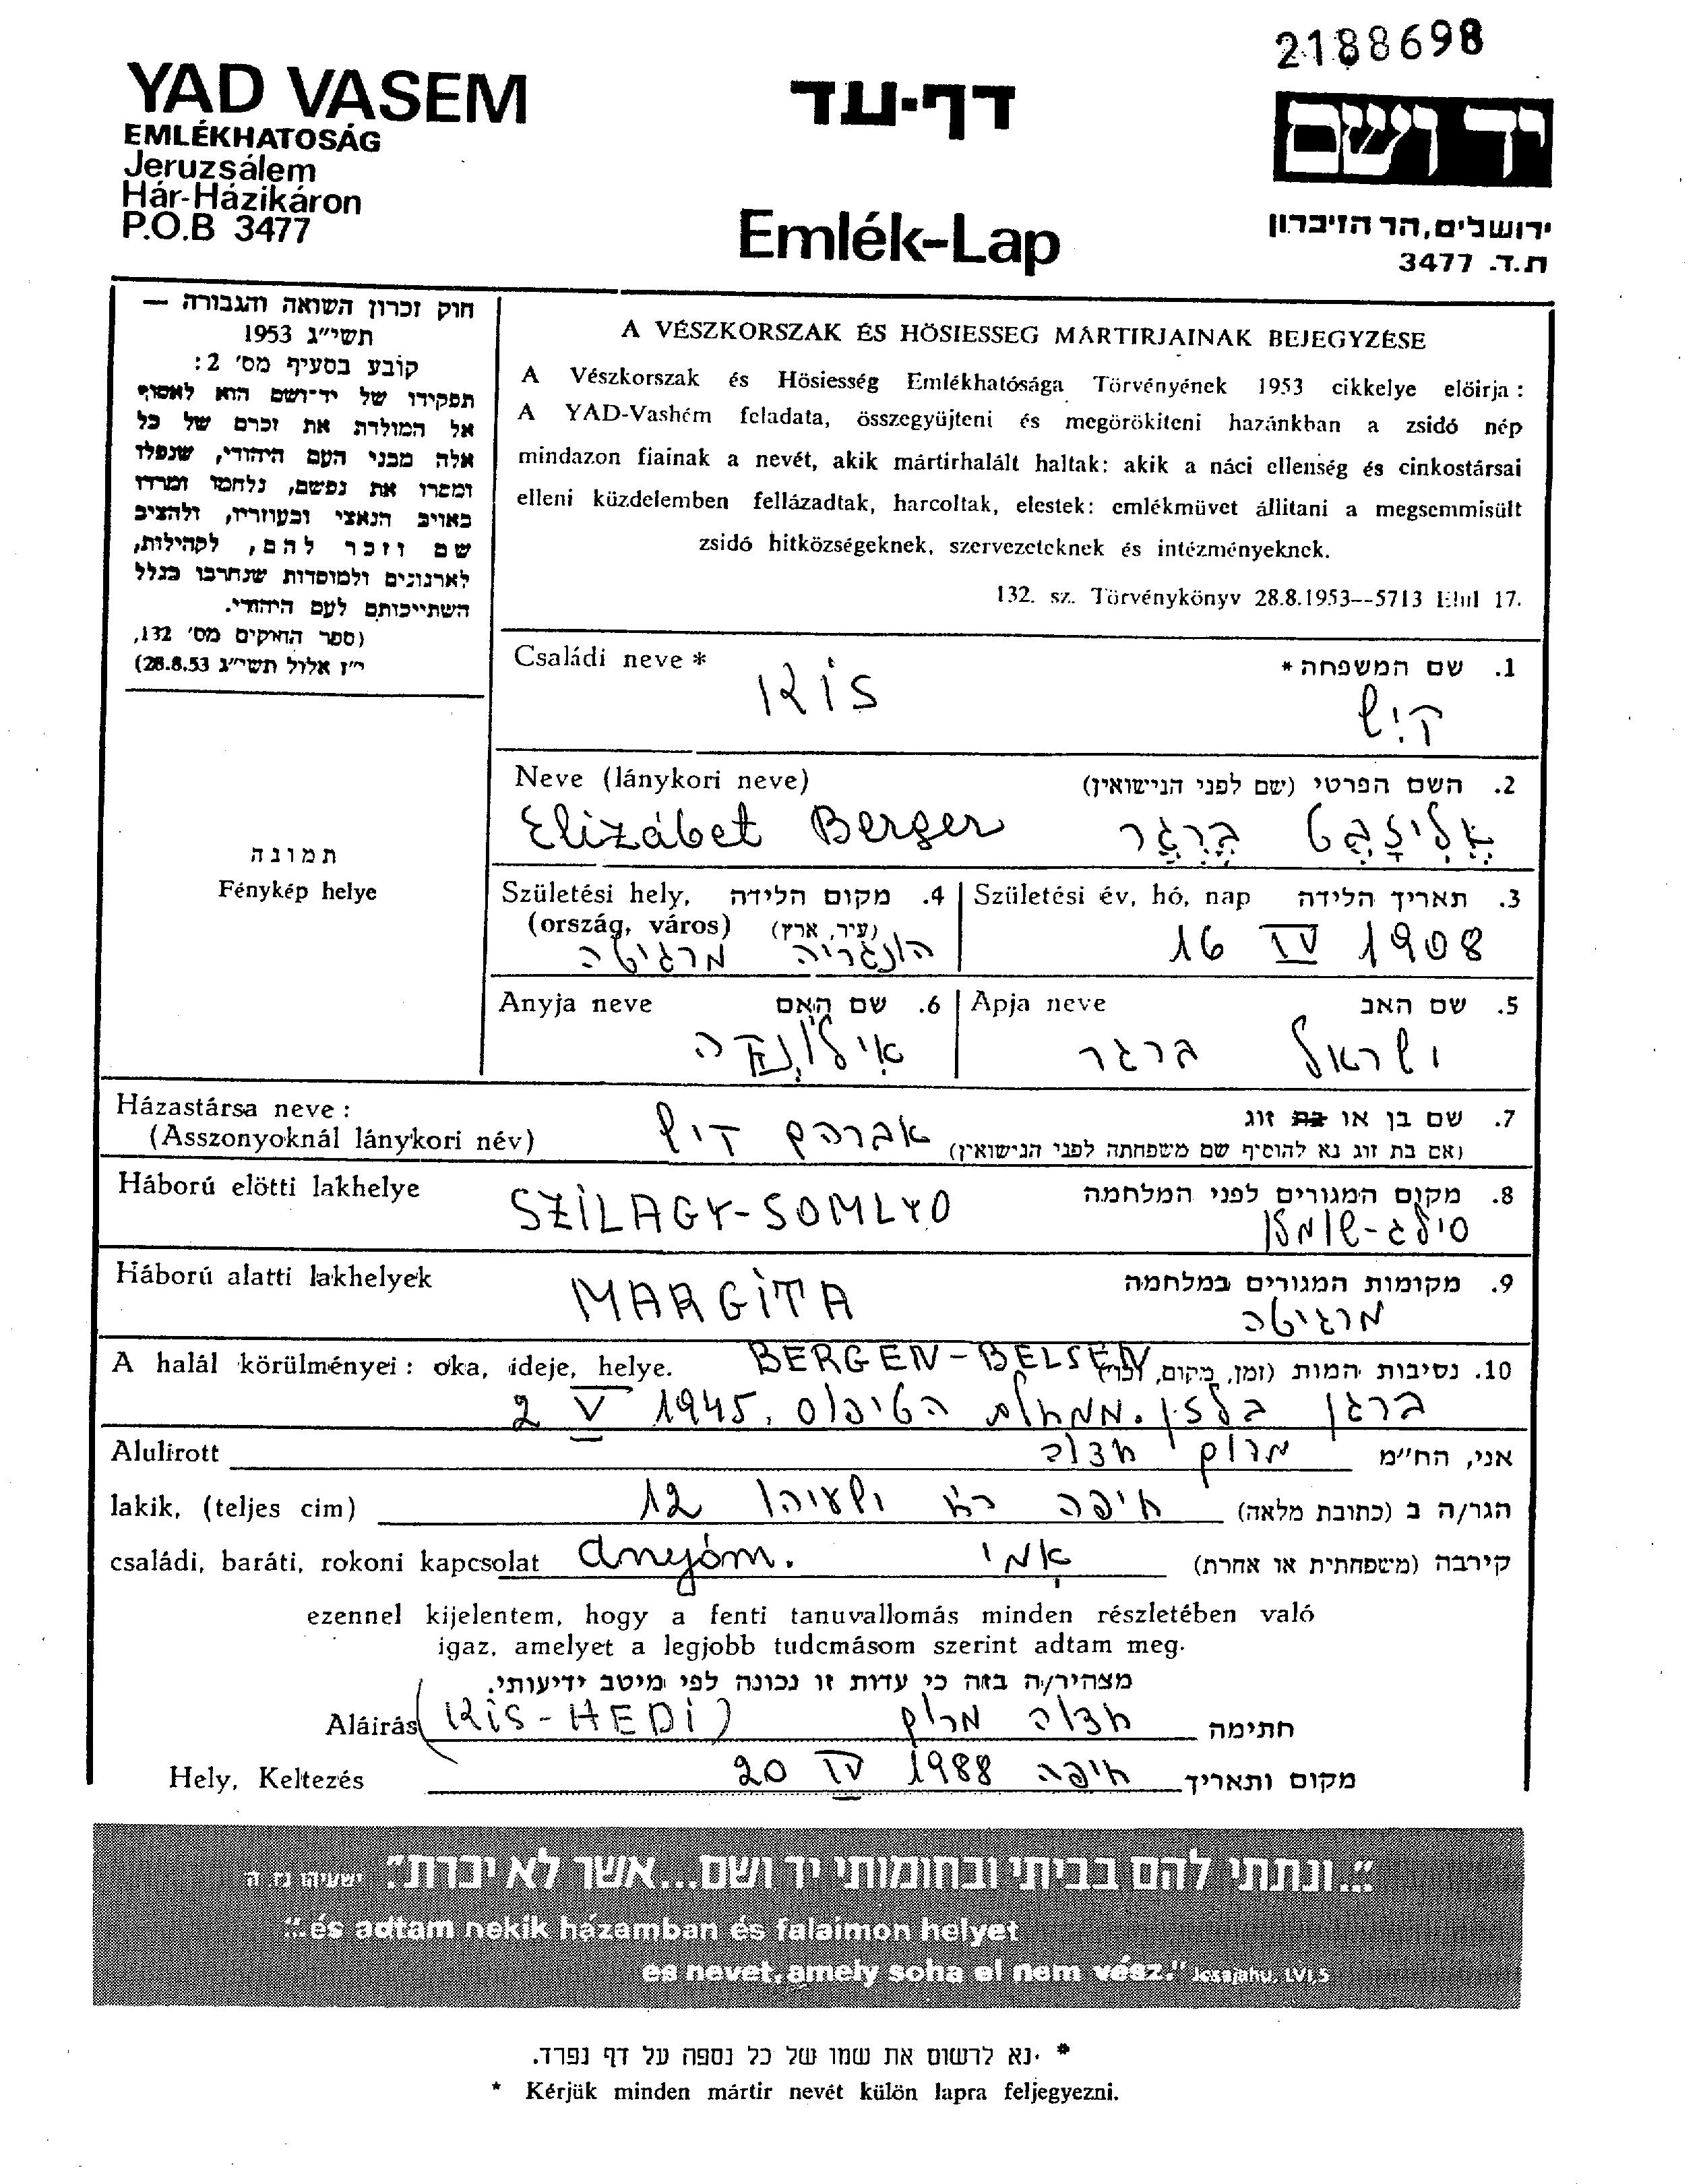 2188698
YAD VASEM
EMLÉKHATOSÁG
Jeruzsálem
Hár-Házikáron
P.O.B 3477
דף-עד
Emlék-Lap
יד ושם
ירושלים, הר הזיכרון
ת.ד. 3477
חוק זכרון השואה והגבורה —
תשי״ג 1953
קובע בסעיף מס׳ 2:
תפקידו של יד־ושם הוא לאסוף
אל המולדת את זכרם של כל
אלה מבני העם היהודי, שנפלו
ומסרו את נפשם, נלחמו ומרדו
באויב הנאצי ובעוזריו, ולהציב
שם וזכר להם, לקהילות,
לארגונים ולמוסדות שנחרבו בגלל
השתייכותם לעם היהודי.
(ספר החוקים מס׳ 132,
י״ז אלול תשי״ג 28.8.53)
תמונה
Fénykép helye
A VÉSZKORSZAK ÉS HÖSIESSEG MÁRTIRJAINAK BEJEGYZÉSE
A Vészkorszak és Hösiesség Emlékhatósága Törvényének 1953 cikkelye elöirja :
A YAD-Vashém feladata, összegyüjteni és megörökiteni hazánkban a zsidó nép
mindazon fiainak a nevét, akik mártirhalált haltak: akik a náci ellenség és cinkostársai
elleni küzdelemben fellázadtak, harcoltak, elestek: emlékmüvet állitani a megsemmisült
zsidó hitközségeknek, szervezeteknek és intézményeknek.
132. sz. Törvénykönyv 28.8.1953--5713 Elul 17.
Családi neve * 1. שם המשפחה *
KiS קיש
Neve (lánykori neve) 2. השם הפרטי (שם לפני הנישואין)
Elizábet Berger אֱלִיזָבֶּט בֶּרְגֶר
Születési hely, 4. מקום הלידה
(ország, város) (עיר, ארץ)
הונגריה מרגיטה
Születési év, hó, nap 3. תאריך הלידה
16 IV 1908
Anyja neve 6. שם האם
אילונקה
Apja neve 5. שם האב
ישראל ברגר
Házastársa neve : 7. שם בן או בת זוג
(Asszonyoknál lánykori név) אברהם קיש (אם בת זוג נא להוסיף שם משפחתה לפני הנישואין)
Háború elötti lakhelye 8. מקום המגורים לפני המלחמה
SZiLAGY-SOMLYO סילג-שומלו
Háború alatti lakhelyek 9. מקומות המגורים במלחמה
MARGiTA מרגיטה
A halál körülményei : oka, ideje, helye. BERGEN-BELSEN 10. נסיבות המות (זמן, מקום, וכו׳)
ברגן בלזן. ממחלת הטיפוס. 2 V 1945
Alulirott אני, הח״מ
lakik, (teljes cim) הגר/ה ב (כתובת מלאה) חיפה רח ישעיהו 12
családi, baráti, rokoni kapcsolat Anyóm. אמי קירבה (משפחתית או אחרת)
ezennel kijelentem, hogy a fenti tanuvallomás minden részletében való
igaz, amelyet a legjobb tudcmásom szerint adtam meg.
מצהיר/ה בזה כי עדות זו נכונה לפי מיטב ידיעותי.
Aláirás (KiS-HEDi) חתימה
Hely, Keltezés מקום ותאריך חיפה 20 IV 1988
״...ונתתי להם בביתי ובחומותי יד ושם...אשר לא יכרת״. ישעיהו נו, ה
"...és adtam nekik házamban és falaimon helyet
es nevet, amely soha el nem vész." Jesajahu, LVI,5
* נא לרשום את שמו של כל נספה על דף נפרד.
* Kérjük minden mártir nevét külön lapra feljegyezni.